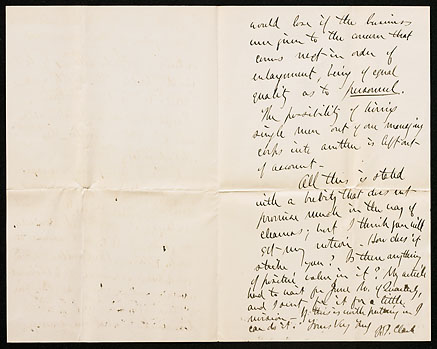 would lose if the business
were given to the concern that
comes next in order of
enlargement, being of equal
quality as to personnel.
The possibility of hiring
single men out of one managing
corps into another is left out
of account -
All this is stated
with a brevity that does not
promise much in the way of
clearness; but I think you will
get my notion. How does it
strike you? Is there anything
of positive value in it? My article
had to wait for June No. of Quarterly,
and I sent for it for a little
revision - If this is worth putting in I
can do it. Yours Very Truly
J.B. Clark